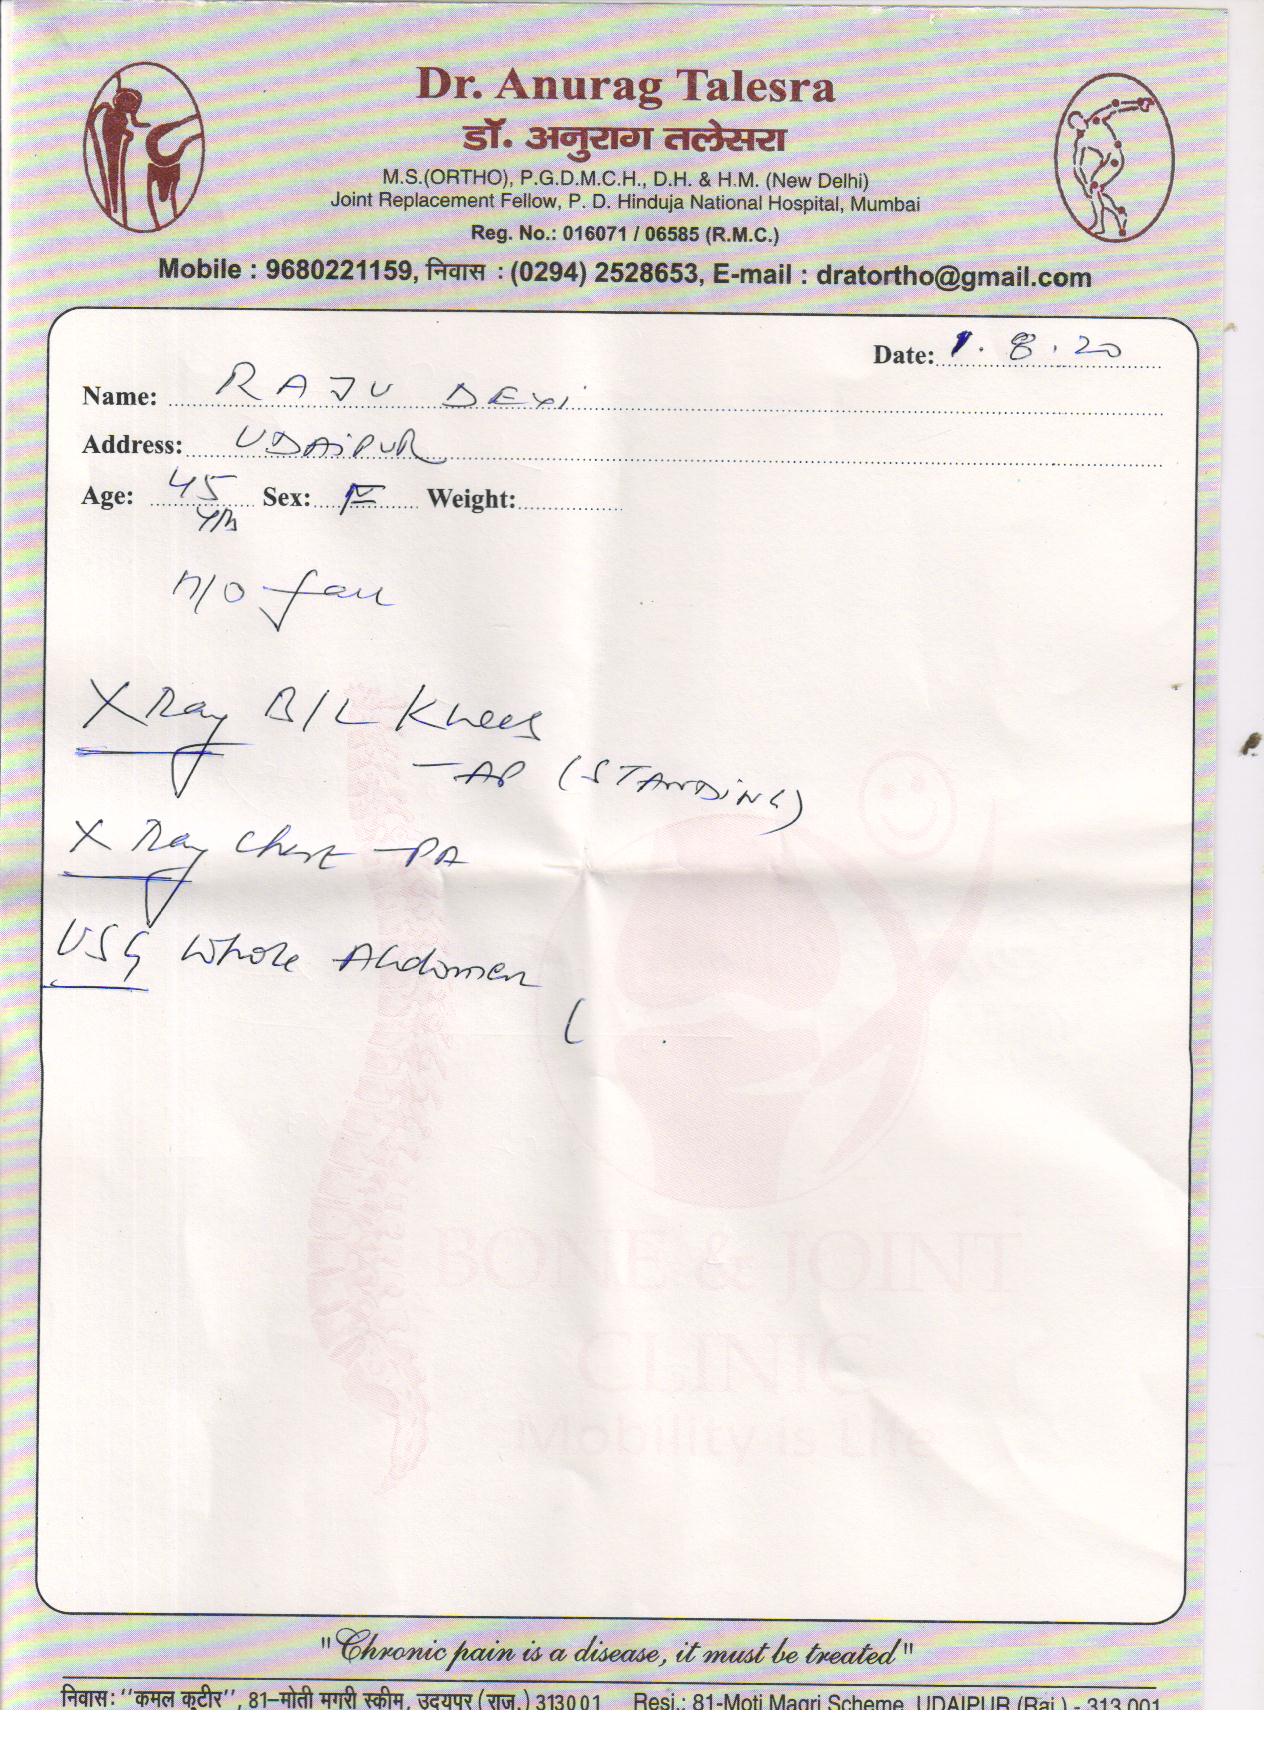 Dr. Anurag Talesra
डॉ. अनुराग तलेसरा
M.S.(ORTHO), P.G.D.M.C.H., D.H. & H.M. (New Delhi)
Joint Replacement Fellow, P. D. Hinduja National Hospital, Mumbai
Reg. No.: 016071 / 06585 (R.M.C.)
Mobile : 9680221159, निवास : (0294) 2528653, E-mail : dratortho@gmail.com
Date: 1.8.20
Name: RAJU DEVI
Address: UDAiPUR
Age: 45 yrs Sex: F Weight:
H/O fall
X Ray B/L Knees
- AP (STANDiNG)
X Ray Chest - PA
USG Whole Abdomen
(
BONE & JOINT
CLINIC
Mobility is Life
"Chronic pain is a disease, it must be treated"
निवास: ''कमल कुटीर'', 81-मोती मगरी स्कीम, उदयपुर (राज.) 313001 Resi.: 81-Moti Magri Scheme, UDAIPUR (Raj.) - 313 001